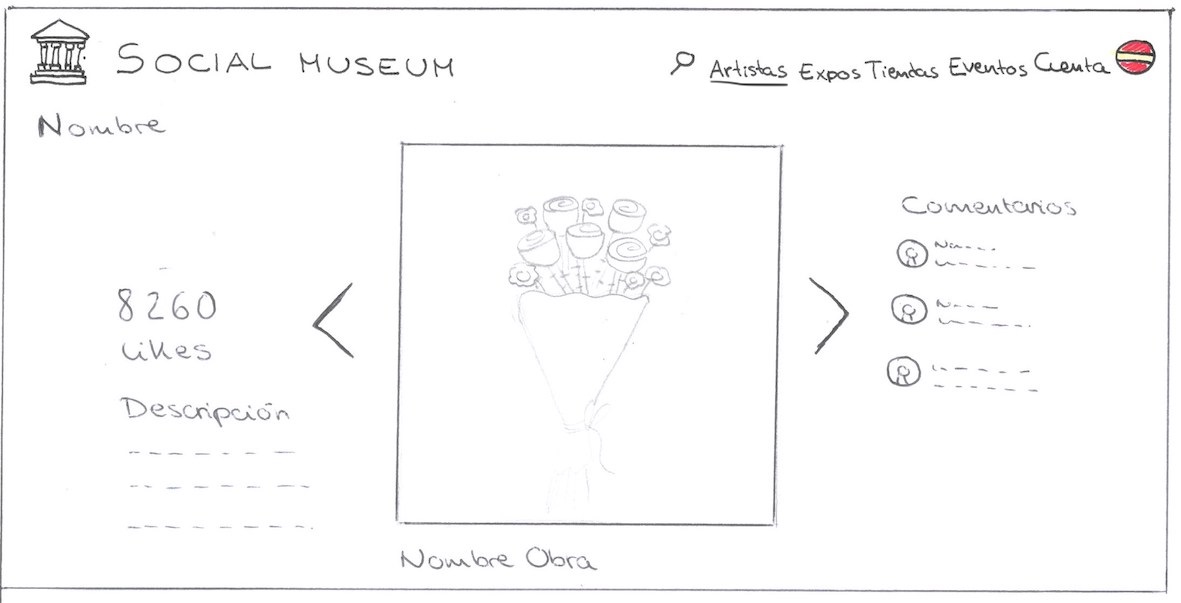 SOCIAL MUSEUM
Artistas Expos Tiendas Eventos Cuenta
Nombre
8260
Likes
Descripción
Nombre Obra
Comentarios